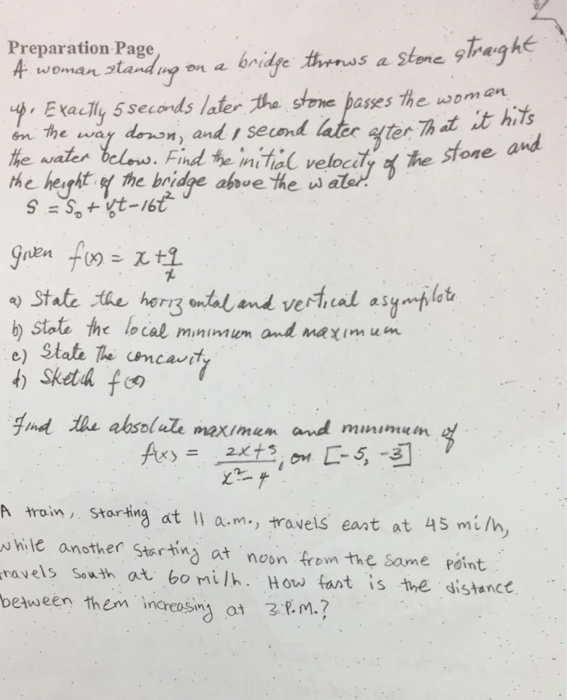 Preparation Page
A woman standing on a bridge throws a stone straight
up. Exactly 5 seconds later the stone passes the woman
on the way down, and 1 second later after that it hits
the water below. Find the initial velocity of the stone and
the height of the bridge above the water.
S = S₀ + V₀t - 16t²
Given f(x) = x + 9/x
a) State the horizontal and vertical asymptote
b) State the local minimum and maximum
c) State the concavity
d) Sketch f(x)
Find the absolute maximum and minimum of
f(x) = (2x+5)/(x²-4), on [-5, -3]
A train, starting at 11 a.m., travels east at 45 mi/h,
while another starting at noon from the same point
travels south at 60 mi/h. How fast is the distance
between them increasing at 3 P.M.?